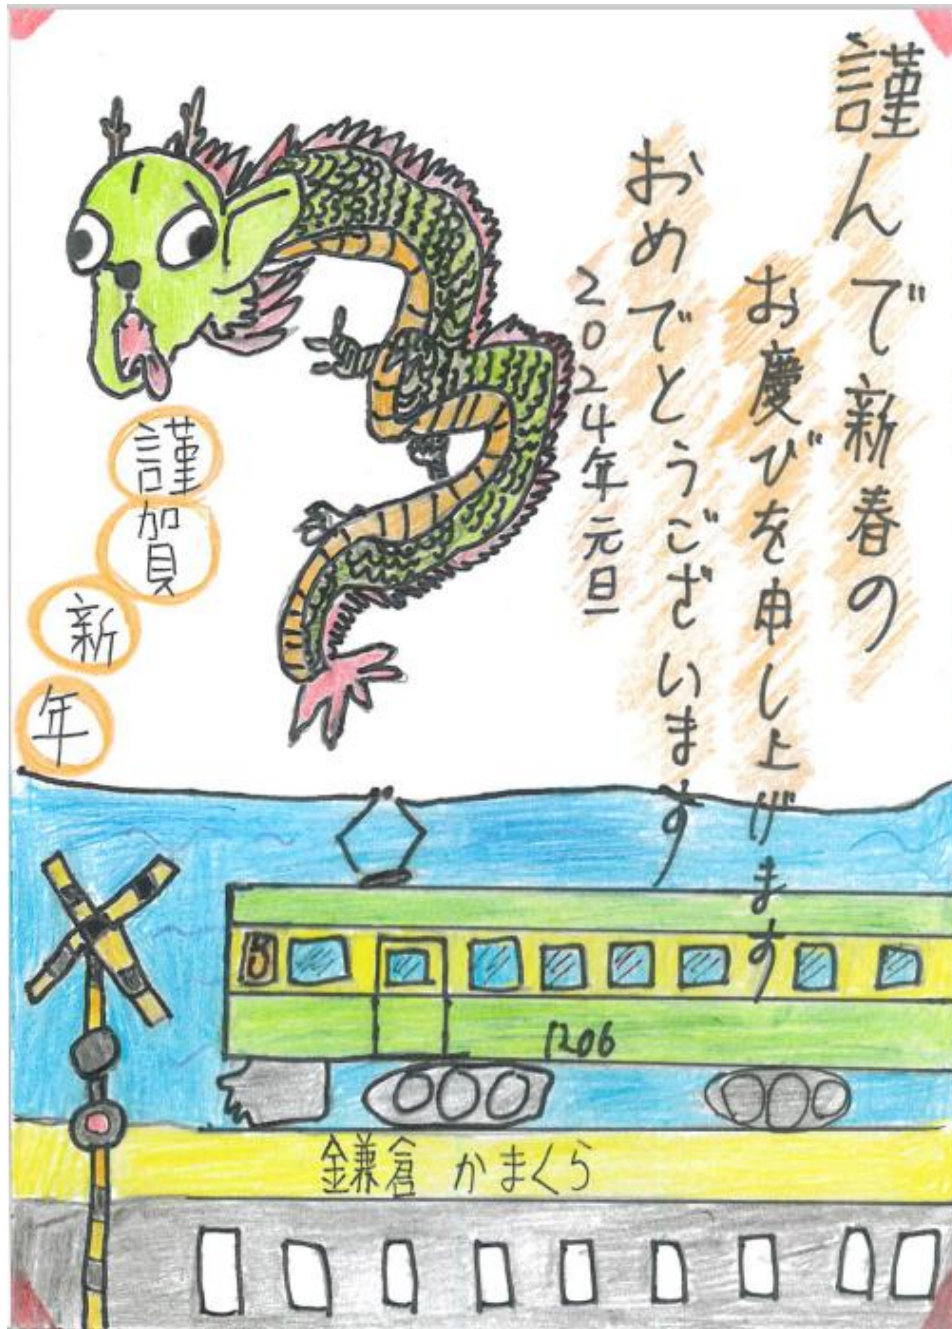 謹んで新春の
お慶びを申し上げます
おめでとうございます
2024年元旦
謹賀新年
1206
鎌倉 かまくら